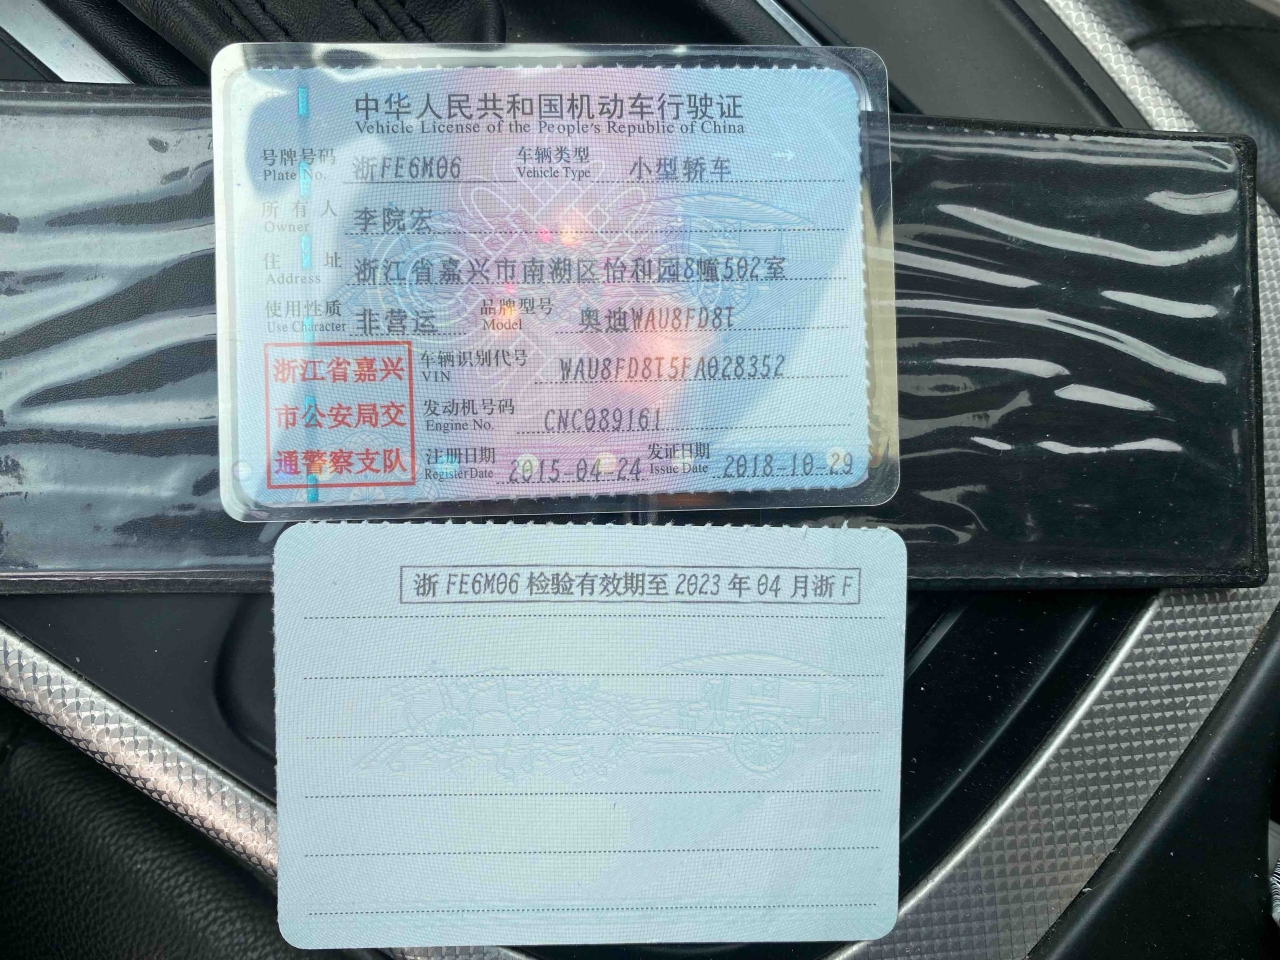 中华人民共和国机动车行驶证
Vehicle License of the People's Republic of China
号牌号码 浙FE6M06 车辆类型 小型轿车
Plate No. Vehicle Type
所有人 李院宏
Owner
住址 浙江省嘉兴市南湖区怡和园8幢502室
Address
使用性质 非营运 品牌型号 奥迪WAU8FD8T
Use Character Model
浙江省嘉兴
市公安局交
通警察支队
车辆识别代号 WAU8FD8T5FA028352
VIN
发动机号码 CNC089161
Engine No.
注册日期 2015-04-24 发证日期 2018-10-29
Register Date Issue Date
浙FE6M06 检验有效期至 2023 年 04 月浙 F